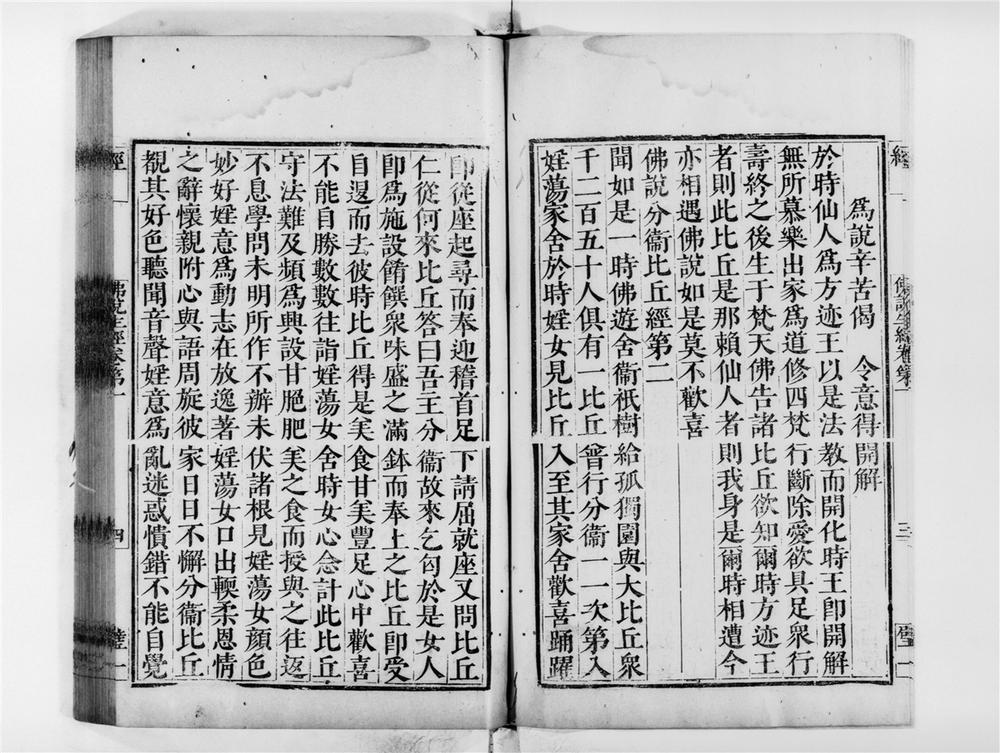 爲說辛苦偈　令意得開解
於時仙人爲方迹王以是法教而開化時王卽開解
無所慕樂出家爲道修四梵行斷除愛欲具足衆行
壽終之後生于梵天佛告諸比丘欲知爾時方迹王
者則此比丘是那賴仙人者則我身是爾時相遭今
亦相遇佛說如是莫不歡喜
佛說分衞比丘經第二
聞如是一時佛遊舍衞祇樹給孤獨園與大比丘衆
千二百五十人俱有一比丘曾行分衞一一次第入
婬蕩家舍於時婬女見比丘入至其家舍歡喜踊躍
經一
佛說生經卷第一
三
璧一
卽從座起尋而奉迎稽首足下請屈就座又問比丘
仁從何來比丘答曰吾主分衞故來乞匃於是女人
卽爲施設餚饌衆味盛之滿鉢而奉上之比丘卽受
自退而去彼時比丘得是美食甘美豐足心中歡喜
不能自勝數數往詣婬蕩女舍時女心念計此比丘
守法難及頻爲興設甘肥肥美之食而授與之往返
不息學問未明所作不辦未伏諸根見婬蕩女顏色
妙好婬意爲動志在放逸著婬蕩女口出輭柔恩情
之辭懷親附心與語周旋彼家日日不懈分衞比丘
覩其好色聽聞音聲婬意爲亂迷惑憒錯不能自覺
經
佛說生經卷第一
四
璧一